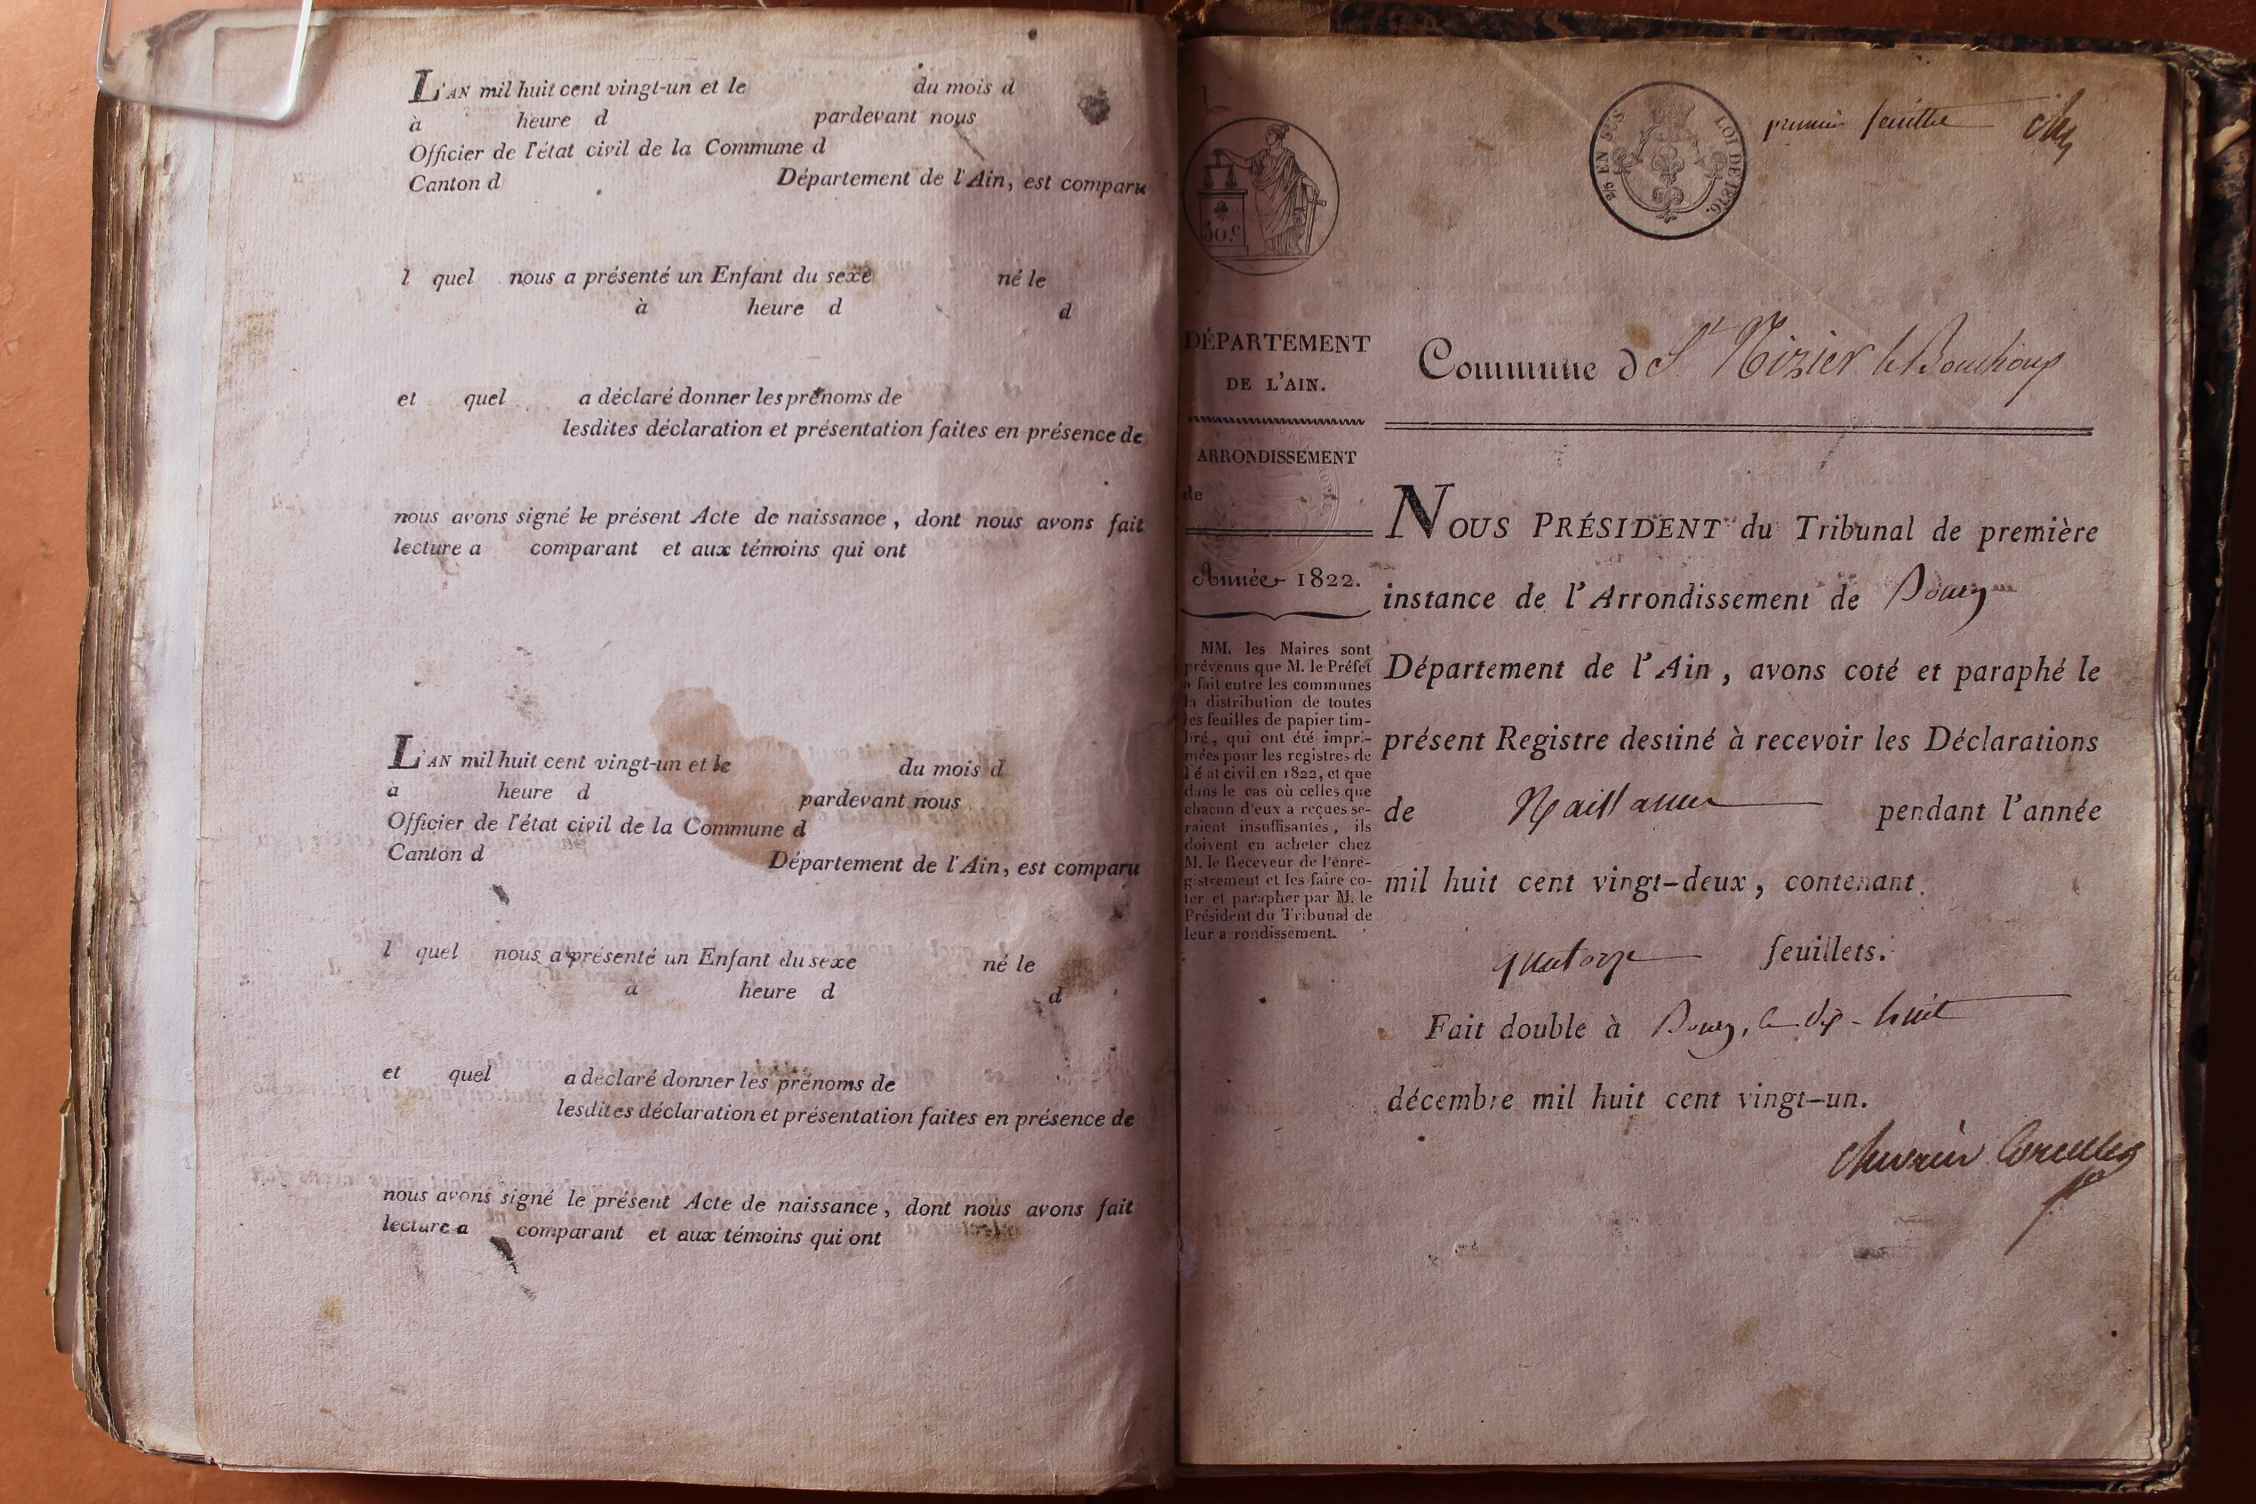 L'AN mil huit cent vingt-un et le du mois d
à heure d pardevant nous
Officier de l'état civil de la Commune d
Canton d Département de l'Ain, est comparu
l quel nous a présenté un Enfant du sexe né le
à heure d d
et quel a déclaré donner les prénoms de
lesdites déclaration et présentation faites en présence de
nous avons signé le présent Acte de naissance, dont nous avons fait
lecture a comparant et aux témoins qui ont
L'AN mil huit cent vingt-un et le du mois d
a heure d pardevant nous
Officier de l'état civil de la Commune d
Canton d Département de l'Ain, est comparu
l quel nous a présenté un Enfant du sexe né le
à heure d d
et quel a déclaré donner les prénoms de
lesdites déclaration et présentation faites en présence de
nous avons signé le présent Acte de naissance, dont nous avons fait
lecture a comparant et aux témoins qui ont
30.c
EN SUS
LOI DE 1816.
premier feuillet
DÉPARTEMENT
DE L'AIN.
ARRONDISSEMENT
de
Année 1822.
MM. les Maires sont
prévenus que M. le Préfet
a fait entre les communes
la distribution de toutes
les feuilles de papier tim-
bré, qui ont été impri-
mées pour les registres de
l'état civil en 1822, et que
dans le cas où celles que
chacun d'eux a reçues se-
raient insuffisantes, ils
doivent en acheter chez
M. le Receveur de l'enre-
gistrement et les faire co-
ter et parapher par M. le
Président du Tribunal de
leur arrondissement.
Commune d St Nizier le Bouchoux
NOUS PRÉSIDENT du Tribunal de première
instance de l'Arrondissement de Bourg
Département de l'Ain, avons coté et paraphé le
présent Registre destiné à recevoir les Déclarations
de Naissance pendant l'année
mil huit cent vingt-deux, contenant
quatorze feuillets.
Fait double à Bourg, le dix-huit
décembre mil huit cent vingt-un.